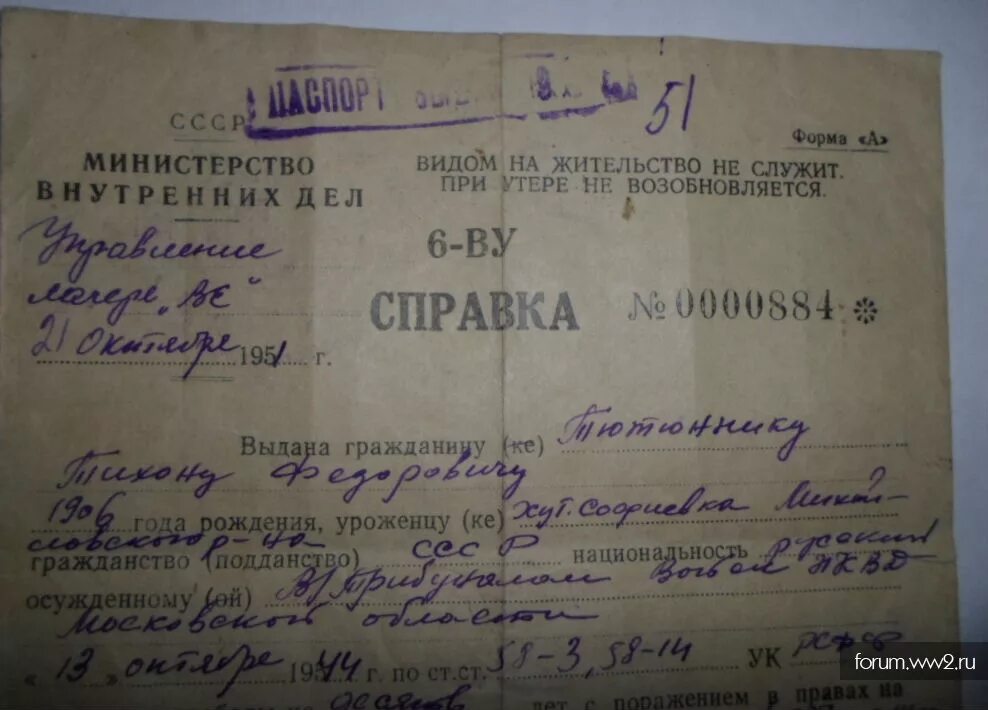 ПАСПОРТ
51
СССР
Форма «А»
МИНИСТЕРСТВО
ВНУТРЕННИХ ДЕЛ
ВИДОМ НА ЖИТЕЛЬСТВО НЕ СЛУЖИТ.
ПРИ УТЕРЕ НЕ ВОЗОБНОВЛЯЕТСЯ.
Управление
6-ВУ
лагеря
СПРАВКА
№ 0000884 *
21 октября 1951 г.
Выдана гражданину (ке) Тютюннику
Тихону Федоровичу
1906 года рождения, уроженцу (ке) хут. Софиевка
р-на
гражданство (подданство) СССР национальность русский
осужденному (ой) В/Трибуналом Войск НКВД
Московской области
« 13 » октября 1944 г. по ст.ст. 58-3, 58-14 УК РСФСР
десять лет с поражением в правах на
forum.ww2.ru